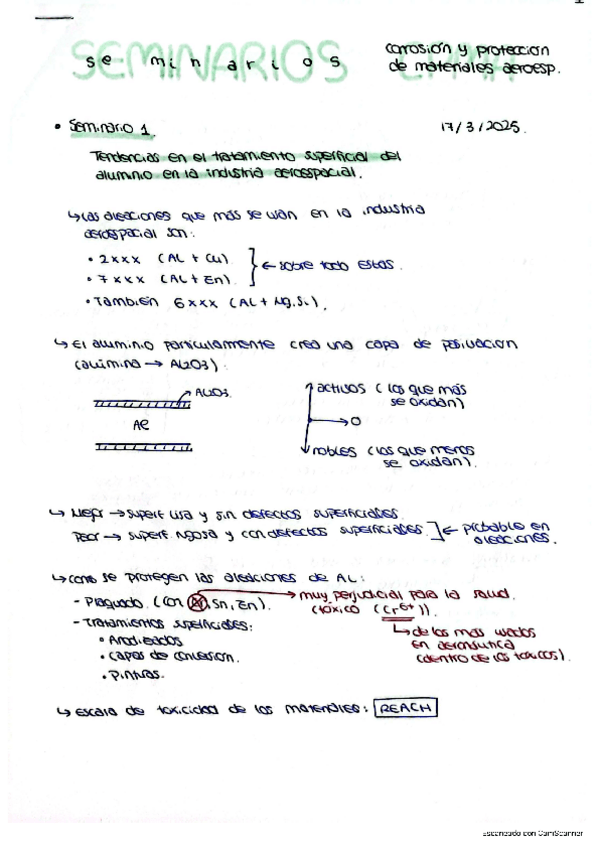 SEMINARIOS CPMA
seminarios
corrosión y protección
de materiales aeroesp.
• Seminario 1.
17/3/2025.
Tendencias en el tratamiento superficial del
aluminio en la industria aerosspacial.
↳ Las aleaciones que más se usan en la industria
aerospacial son:
• 2xxx (AL + Cu)
• 7xxx (AL + Zn)
← sobre todo estas.
• También 6xxx (AL + Mg, Si).
↳ El aluminio particularmente crea una capa de pasivación
(alúmina → AL2O3):
AL2O3
Al
activos (los que más
se oxidan)
0
nobles (los que menos
se oxidan).
↳ Mejor → superf. lisa y sin defectos superficiales.
Peor → superf. rugosa y con defectos superficiales.
← probable en
aleaciones.
↳ como se protegen las aleaciones de AL:
- Plaquado. (Con , Sn, Zn).
muy perjudicial para la salud.
(tóxico (Cr6+)).
- Tratamientos superficiales:
↳ de los más usados
en aeronáutica
(dentro de los tóxicos).
• Anodizados
• Capas de conversión.
• Pinturas.
↳ escala de toxicidad de los materiales: REACH
Escaneado con CamScanner